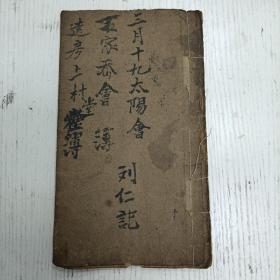 三月十九太陽會
王家香會 簿
遠房上村堂 簿
刘仁記